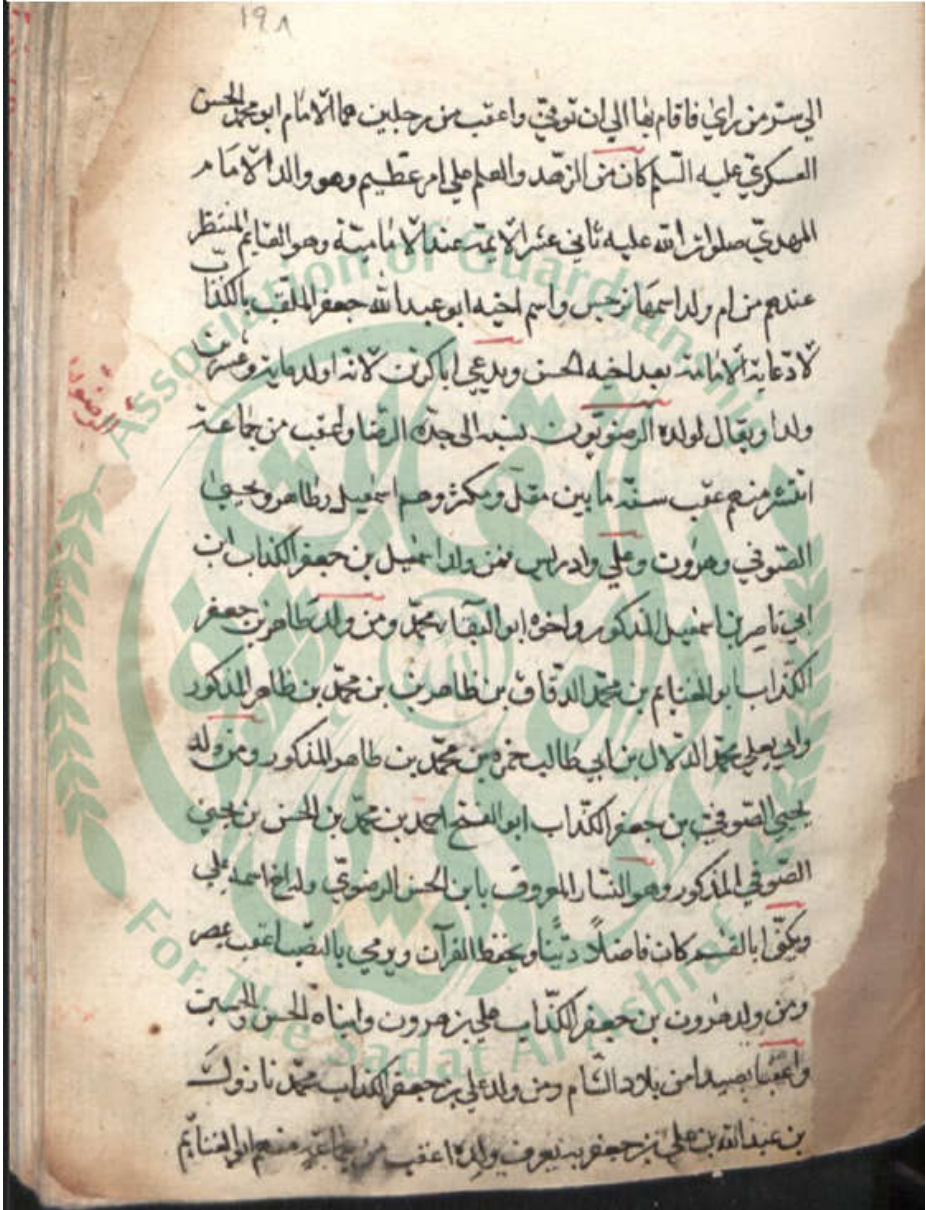 ١٩٨
الي سر من راي فاقام بها الي ان توفي واعقب من رجلين هما الامام ابو محمد الحسن
العسكري عليه السلم كان من الزهد والعلم علي امر عظيم وهو والد الامام
المهدي صلوات الله عليه ثاني عشر الايمة عند الامامية وهو القايم المنتظر
عندهم من ام ولد اسمها نرجس واسم اخيه ابو عبدالله جعفر الملقب بالكذاب
لادعايه الامامة بعد اخيه الحسن ويدعي اباكرين لانه اولد ماية وعشرين
ولدا ويقال لولده الرضويون نسبة الي جده الرضا واعقب من جماعة
انتشر منهم عقب ستة ما بين مقل ومكثر وهم اسمعيل وطاهر ويحيي
الصوفي وهرون وعلي وادريس فمن ولد اسمعيل بن جعفر الكذاب ابن
ابي ناصر بن اسمعيل المذكور واخوه ابو البقا محمد ومن ولد طاهر بن جعفر
الكذاب ابو الغنايم بن محمد الدقاق بن طاهر بن محمد بن طاهر المذكور
وابي يعلي محمد الدلال بن ابي طالب حمزه بن محمد بن طاهر المذكور ومن ولد
يحيي الصوفي بن جعفر الكذاب ابو الفتح احمد بن محمد بن الحسن بن يحيي
الصوفي المذكور وهو النسابة المعروف بابن الحسن الرضوي وله اخ اسمه علي
ويكني ابا القسم كان فاضلا دينا ويحفظ القرآن ويرمي بالنصب اعقب بمصر
ومن ولد هرون بن جعفر الكذاب علي بن هرون وابناه الحسن والحسين
واعقبا بصيدا من بلاد الشام ومن ولد علي بن جعفر الكذاب محمد نازوك
بن عبدالله بن علي بن جعفر به يعرف ولده اعقب من جماعة منهم ابي الغنايم
الرضويون
Association of Guardianship
For The Sadat Al Ashraf